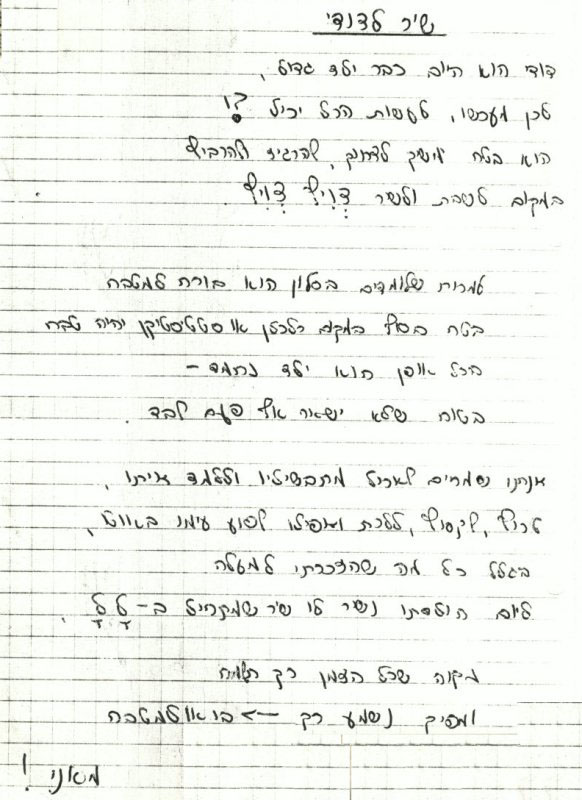 שיר לדנדי
דודי הוא היום כבר ילד גדול,
לכן מעכשו, לעשות הכל יכול ?!
הוא בטח ימשיך לצרוח, להרגיז ולהרביץ
במקום לשבת ולשיר
למרות שלומדים בסלון הוא בורח למטבח
בטח בסוף במקום כלכלן או סטטיסטיקן יהיה טבח
בכל אופן הוא ילד נחמד –
בטוח שלא ישאר אף פעם לבד.
אנחנו נשמחים לאכול מתבשיליו וללמד איתו,
לרוץ, לקפוץ, ללכת ואפילו לנסוע עימו באוטו,
בגלל כל מה שהזכרתי למעלה
ליום הולדתו נשיר לו שיר שמתחיל ב-
מקוה שכל הזמן רק תשמח
ומפיך נשמע רק <-- בואו למטבח
מאני !